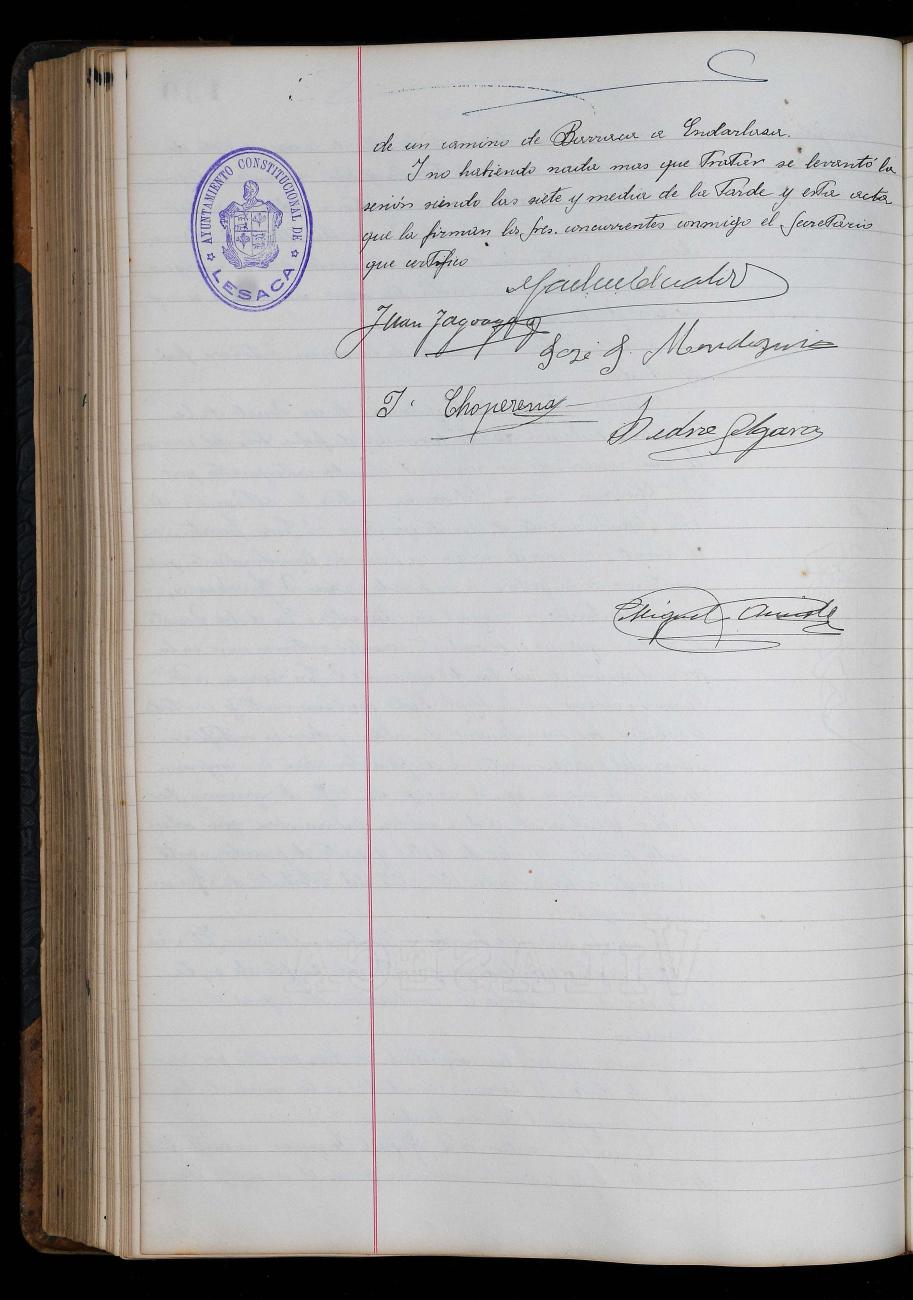 AYUNTAMIENTO CONSTITUCIONAL DE
LESACA
de un camino de a Endarlasa.
I no habiendo nada mas que tratar se levantó la
sesión siendo las siete y media de la tarde y esta acta
que la firman los Sres. concurrentes conmigo el Secretario
que certifico
Juan
José
T. Choperena
Pedro Elgarra
Miguel